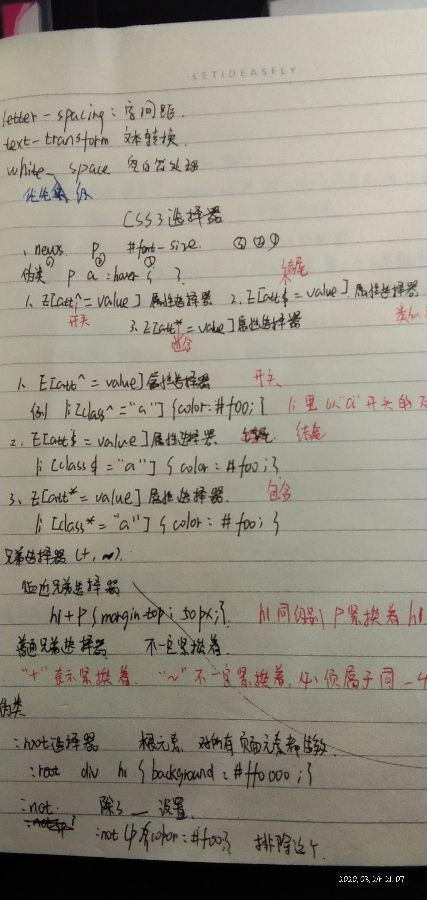 LETIDEASFLY
letter-spacing: 字间距.
text-transform 文本转换.
white-space 空白符处理
优先级
CSS3选择器
、news. p. #font-size. ③②①
② ③ ①
伪类 p a:hover { }. 结尾
1. E[att^=value] 属性选择器 2. E[att$=value]. 属性选择器
开头 3. E[att*=value] 属性选择器 类似
包含
1. E[att^=value] 属性选择器 开头
例 li[class^="a"] {color:#f00;} li里以"a"开头的
2. E[att$=value] 属性选择器. 结尾
li[class$="a"] {color:#f00;}
3. E[att*=value] 属性选择器. 包含
li[class*="a"] {color:#f00;}
兄弟选择器(+,~).
临近兄弟选择器
h1+p{margin-top:50px;}. h1同级别p紧挨着h1
普通兄弟选择器 不一定紧挨着.
"+"表示紧挨着. "~"不一定紧挨着, 必须属于同一
伪类
:root选择器 根元素. 对所有页面元素都生效.
:root div h1 {background:#ff0000;}
:not. 除了__设置.
:not(p){color:#f00;} 排除这个.
2020.03.24 21:07